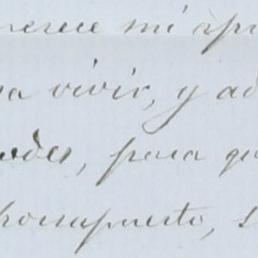 merece mi apr
a vivir, y ad
odes, para qu
Presupuesto, s